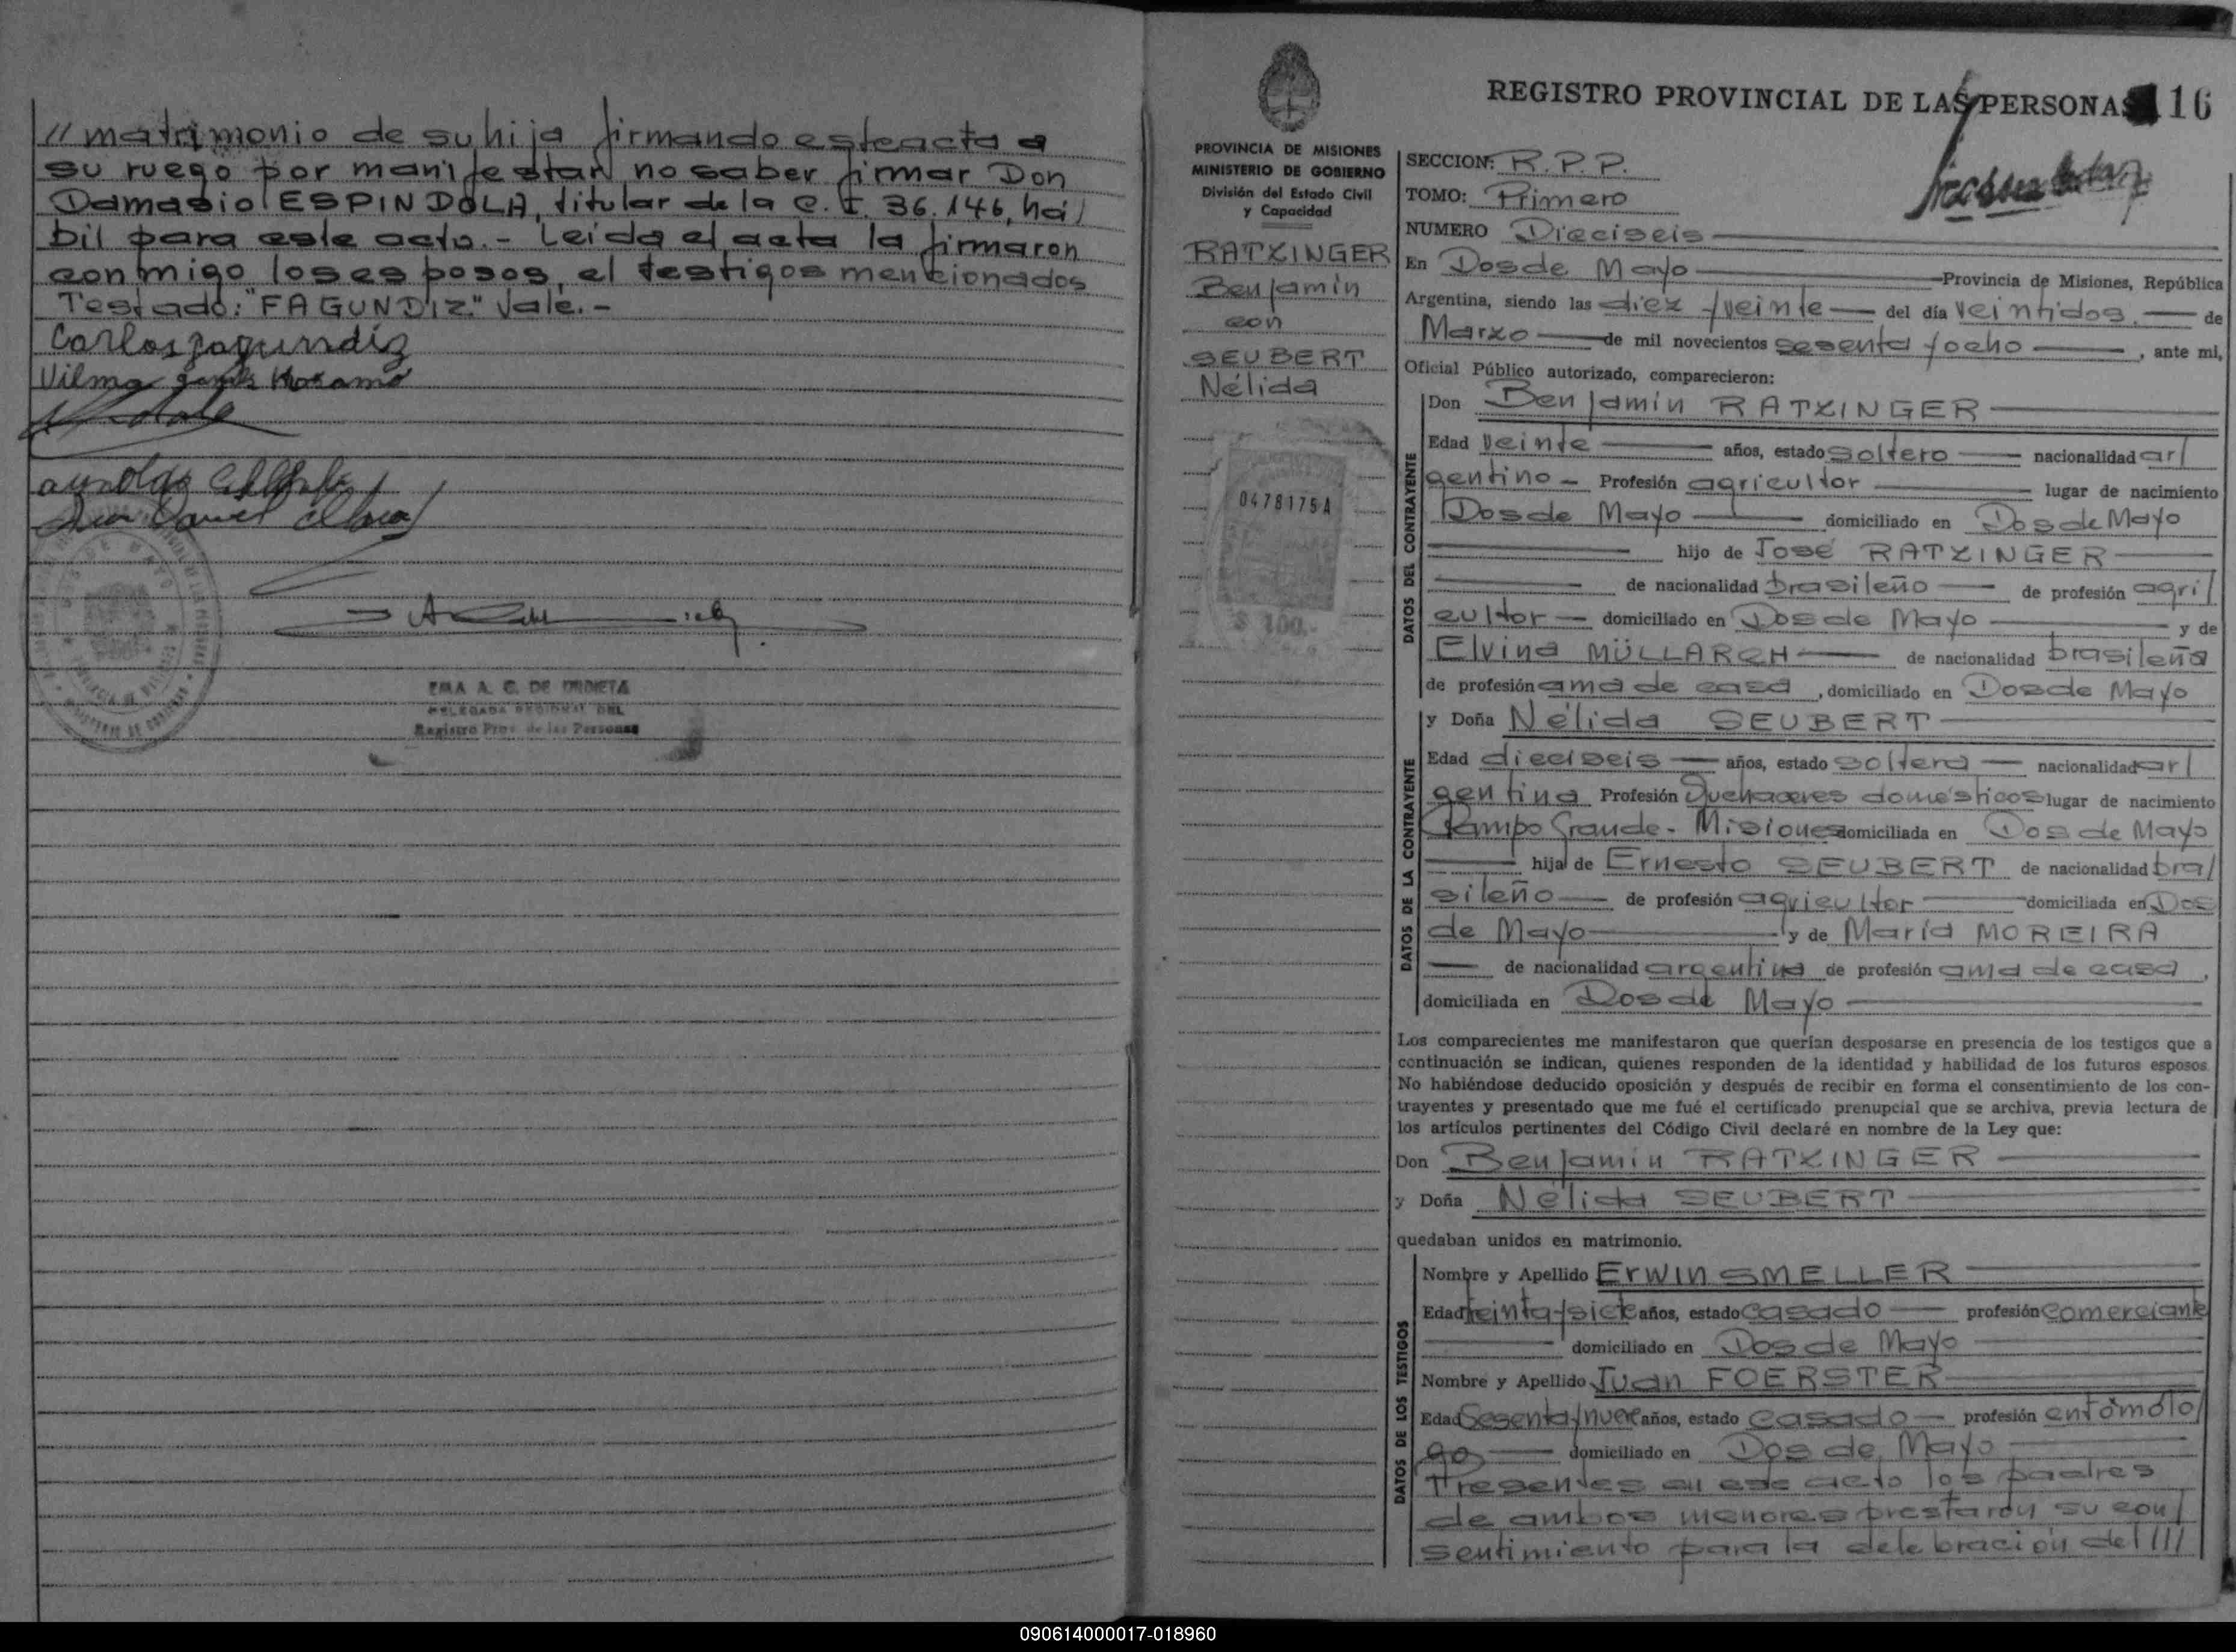 // matrimonio de su hija firmando esteacta a
su ruego por manifestar no saber firmar Don
Damasio ESPINDOLA, titular de la C.I. 36.146, há/
bil para este acto.- Leida el acta la firmaron
conmigo los esposos, el testigos mencionados
Testado: "FAGUNDIZ." Vale.-
Carlos fagundiz
Vilma
DOS DE MAYO
DE URDIETA
DELEGADA REGIONAL DEL
Registro Prov. de las Personas
REGISTRO PROVINCIAL DE LAS PERSONAS 116
PROVINCIA DE MISIONES
MINISTERIO DE GOBIERNO
División del Estado Civil
y Capacidad
RATZINGER
Benjamín
con
SEUBERT
Nélida
0478175A
$ 100.-
SECCION: R.P.P.
TOMO: Primero
NUMERO Dieciseis
En Dosde Mayo Provincia de Misiones, República
Argentina, siendo las diez y veinte del día veintidos. de
Marzo de mil novecientos sesenta y ocho , ante mi,
Oficial Público autorizado, comparecieron:
DATOS DEL CONTRAYENTE
Don Benjamín RATZINGER
Edad veinte años, estado soltero nacionalidad ar/
gentino - Profesión agricultor lugar de nacimiento
Dosde Mayo domiciliado en Dosde Mayo
hijo de José RATZINGER
de nacionalidad brasileño de profesión agri/
cultor domiciliado en Dosde Mayo y de
Elvina MÜLLARCH de nacionalidad brasileña
de profesión ama de casa , domiciliado en Dosde Mayo
DATOS DE LA CONTRAYENTE
y Doña Nélida SEUBERT
Edad dieciseis años, estado soltera nacionalidad ar/
gentina Profesión Quehaceres domésticos lugar de nacimiento
Campo Grande - Misiones domiciliada en Dos de Mayo
hija de Ernesto SEUBERT de nacionalidad bra/
sileño de profesión agricultor domiciliada en Dos
de Mayo y de María MOREIRA
de nacionalidad argentina de profesión ama de casa ,
domiciliada en Dosde Mayo
Los comparecientes me manifestaron que querían desposarse en presencia de los testigos que a
continuación se indican, quienes responden de la identidad y habilidad de los futuros esposos.
No habiéndose deducido oposición y después de recibir en forma el consentimiento de los con-
trayentes y presentado que me fué el certificado prenupcial que se archiva, previa lectura de
los artículos pertinentes del Código Civil declaré en nombre de la Ley que:
Don Benjamín RATZINGER
y Doña Nélida SEUBERT
quedaban unidos en matrimonio.
DATOS DE LOS TESTIGOS
Nombre y Apellido Erwin SMELLER
Edad treinta y siete años, estado casado profesión comerciante
domiciliado en Dosde Mayo
Nombre y Apellido Juan FOERSTER
Edad Sesenta y nueve años, estado casado profesión entómolo/
go domiciliado en Dos de Mayo
Presentes en este acto los padres
de ambos menores prestaron su con/
sentimiento para la celebración del ///
090614000017-018960